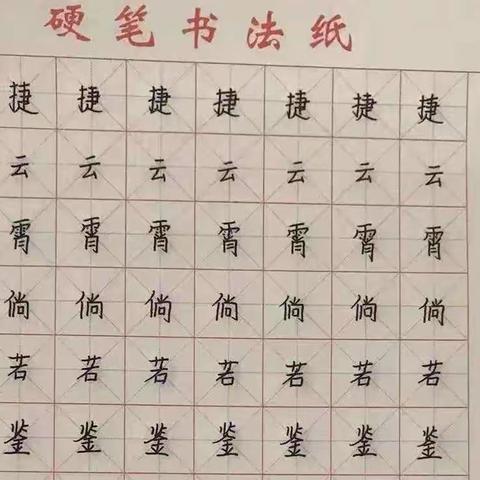 硬笔书法纸
捷捷捷捷捷捷捷
云云云云云云云
霄霄霄霄霄霄霄
倘倘倘倘倘倘倘
若若若若若若若
鉴鉴鉴鉴鉴鉴鉴